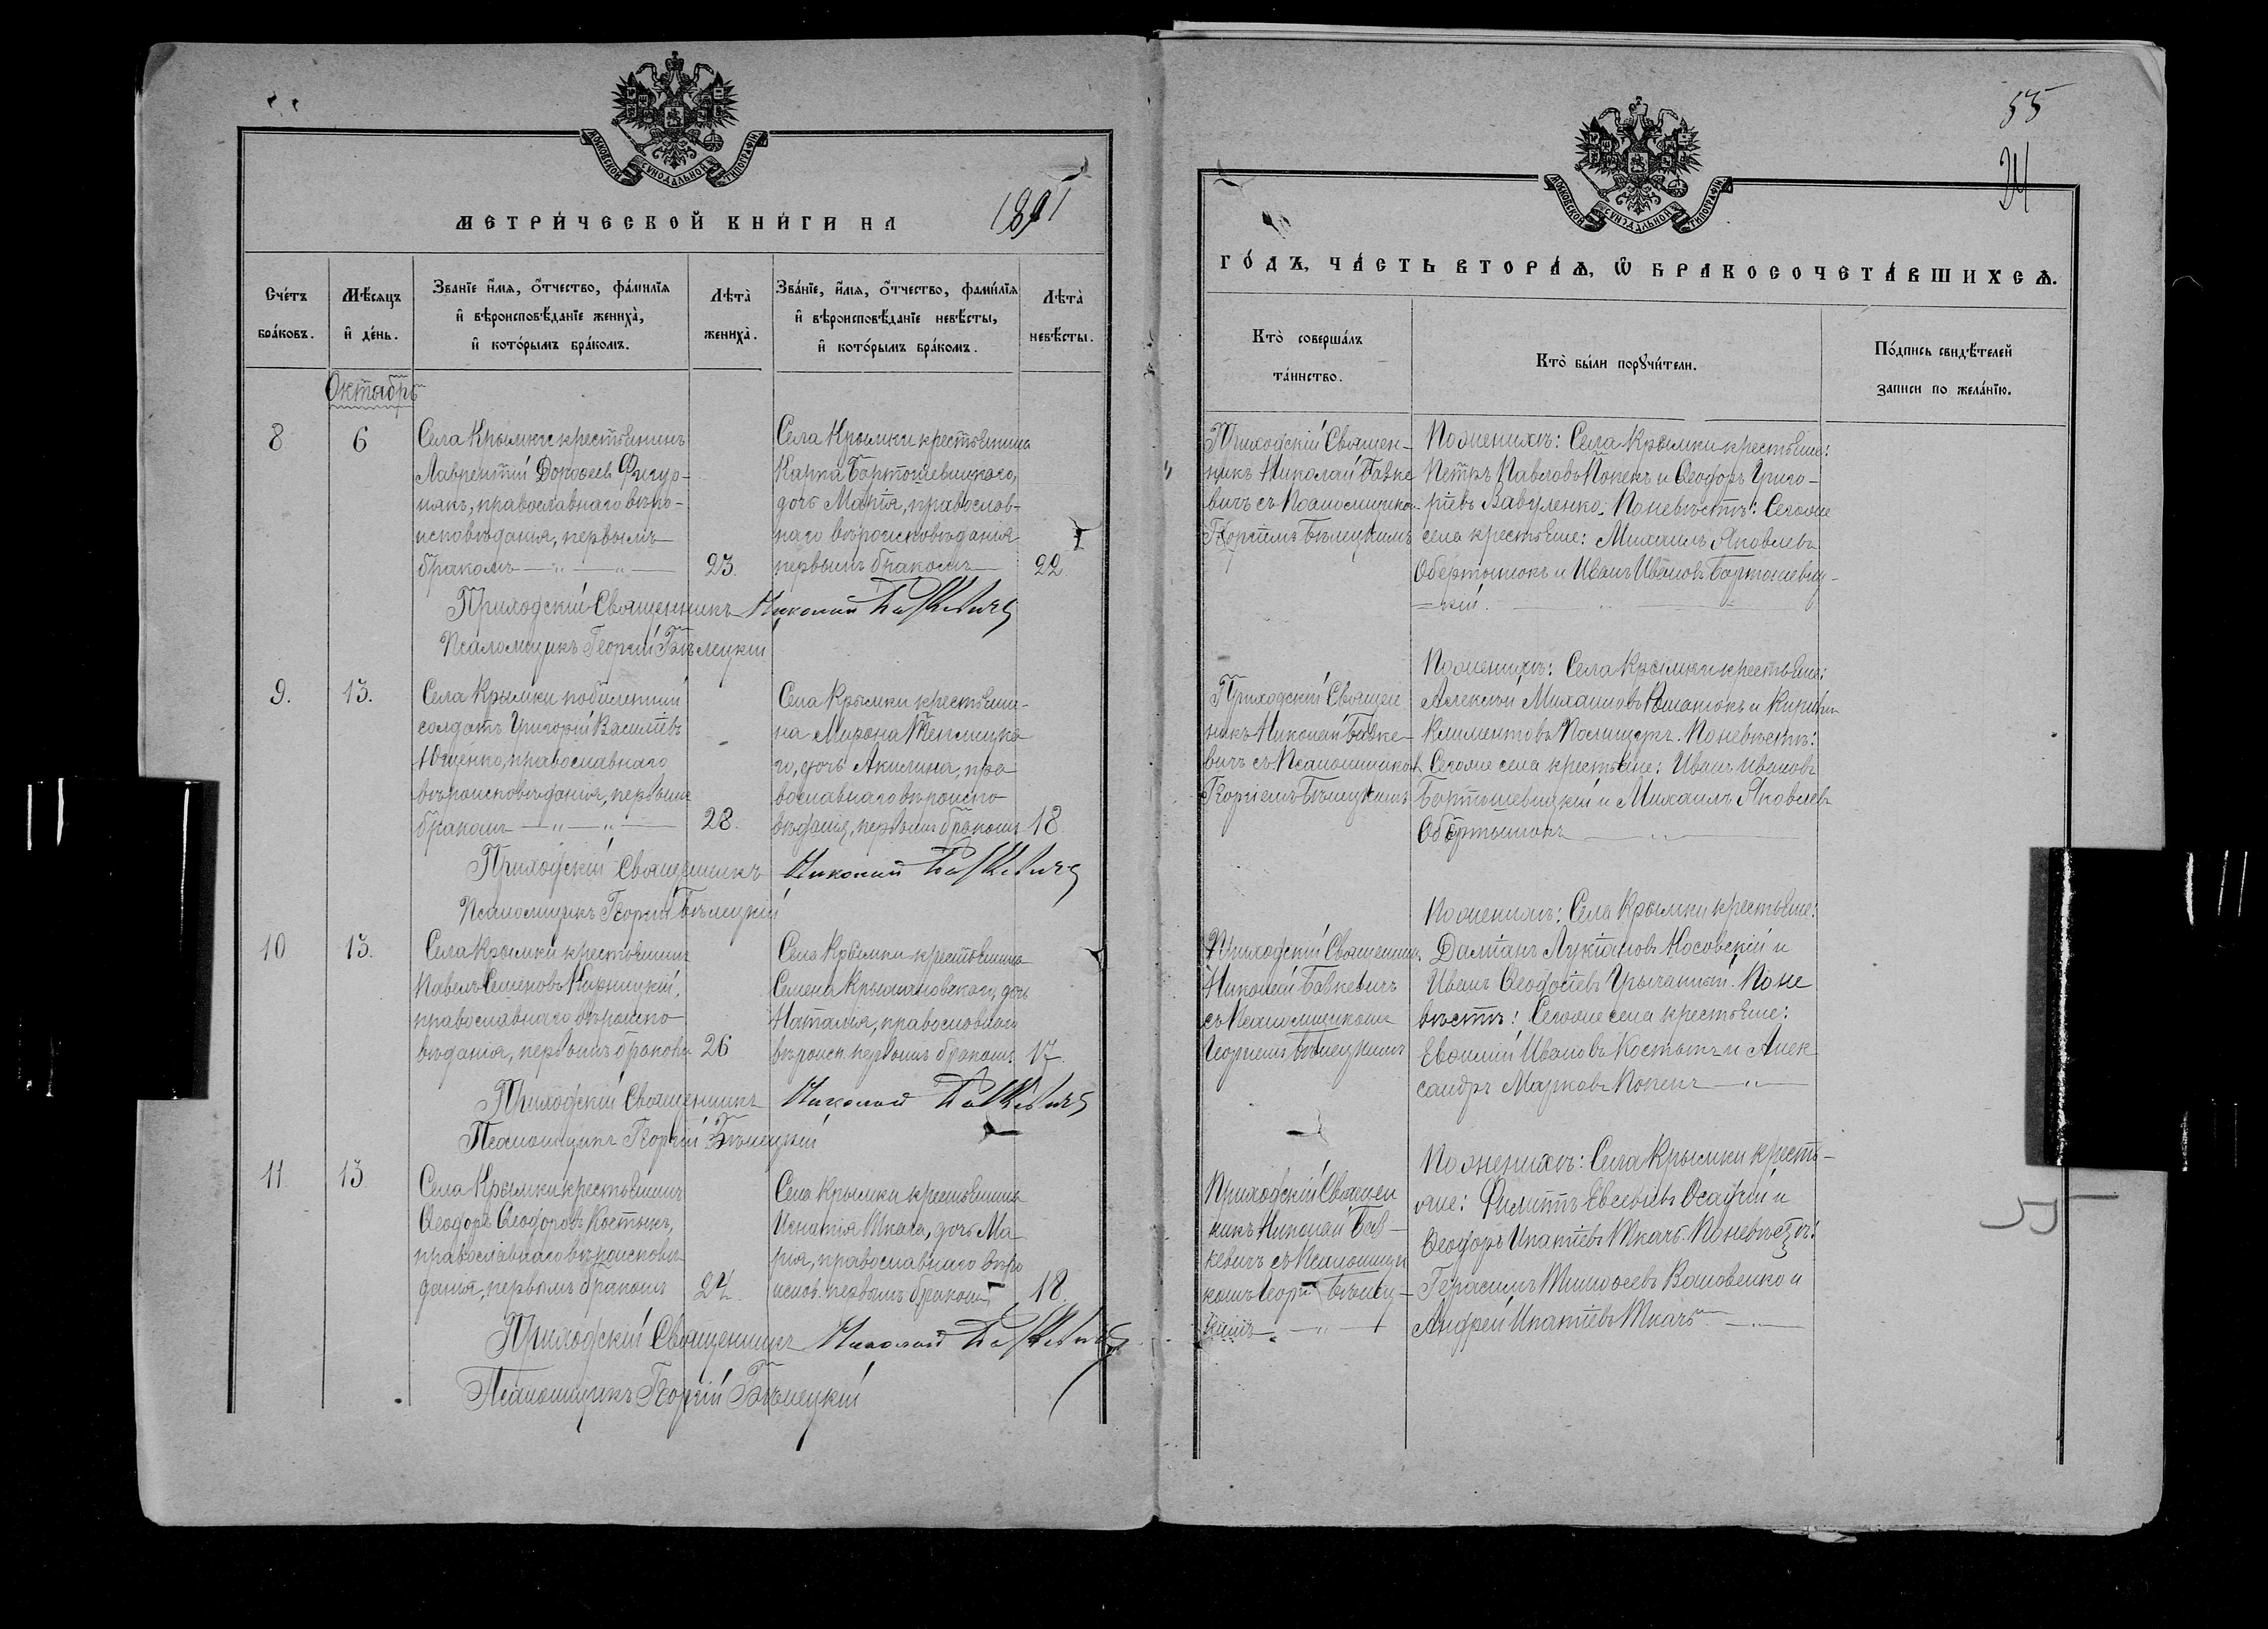 МОСКОВСКОЙ СУНОДАЛЬНОЙ ТИПОГРАФІИ
МЕТРИ́ЧЕСКОЙ КНИ́ГИ НА 1891
Сче́тъ бра́ковъ.
Мѣ́сяцъ и҆ де́нь.
Зва́нїе и҆́мя, ѻ҆́тчество, фами́лїя
и҆ вѣроисповѣ́данїе жениха̀,
и҆ кото́рымъ бра́комъ.
Лѣта̀ жениха̀.
Зва́нїе, и҆́мя, ѻ҆́тчество, фами́лїя
и҆ вѣроисповѣ́данїе невѣ́сты,
и҆ кото́рымъ бра́комъ.
Лѣта̀ невѣ́сты.
Октябрь
8
6
Села Крымки крестьянинъ
Лаврентій Дорофеевъ Фигур-
някъ, православнаго вѣро-
исповѣданія, первымъ
бракомъ
23.
Села Крымки крестьянина
Карпа Бартошевицкаго,
дочь Марія, православ-
наго вѣроисповѣданія
первымъ бракомъ
22
Приходскій Священникъ Николай Бавкевичъ
Псаломщикъ Георгій Бѣлецкій
9.
13.
Села Крымки
солдатъ Григорій Василіевъ
Ющенко, православнаго
вѣроисповѣданія, первымъ
бракомъ
28.
Села Крымки крестьяни-
на Мирона
го, дочь Акилина, пра
вославнаго вѣроиспо
вѣданія, первымъ бракомъ
18.
Приходскій Священникъ Николай Бавкевичъ
Псаломщикъ Георгій Бѣлецкій
10
13.
Села Крымки крестьянинъ
Павелъ Семеновъ
православнаго вѣроиспо
вѣданія, первымъ бракомъ
26
Села Крымки крестьянина
Семена Крыжановскаго, дочь
Наталія, православнаго
вѣроисп. первымъ бракомъ.
17.
Приходскій Священникъ Николай Бавкевичъ
Псаломщикъ Георгій Бѣлецкій
11
13
Села Крымки крестьянинъ
Ѳеодоръ Ѳеодоровъ Костюкъ,
православнаго вѣроисповѣ
данія, первымъ бракомъ
24.
Села Крымки крестьянина
Игнатія Ткача, дочь Ма
рія, православнаго вѣро
испов. первымъ бракомъ
18.
Приходскій Священникъ Николай Бавкевичъ
Псаломщикъ Георгій Бѣлецкій
55
МОСКОВСКОЙ СУНОДАЛЬНОЙ ТИПОГРАФІИ
ГО́ДЪ, ЧА́СТЬ ВТОРА́Ѧ, Ѡ҆ БРАКОСОЧЕТА́ВШИХСѦ.
Кто̀ соверша́лъ
та́инство.
Кто̀ бы́ли порꙋчи́тели.
По́дпись свидѣ́телей
за́писи по жела́нїю.
Приходскій Священ-
никъ Николай Бавке
вичъ съ Псаломщикомъ
Георгіемъ Бѣлецкимъ
По женихѣ: Села Крымки крестьяне:
Петръ Павловъ Попекъ и Ѳеодоръ Григо-
ріевъ Вакуленко. По невѣстѣ: Сегоже
села крестьяне: Михаилъ Яковлевъ
Обертышокъ и Иванъ Ивановъ Бартошевиц-
кій.
Приходскій Священ
никъ Николай Бавке-
вичъ съ Псаломщикомъ
Георгіемъ Бѣлецкимъ
По женихѣ: Села Крымки крестьяне:
Алексѣй Михаиловъ и Кирилъ
Климентовъ Полищукъ. По невѣстѣ:
Сегоже села крестьяне: Иванъ Ивановъ
Бартошевицкій и Михаилъ Яковлевъ
Обертышокъ
Приходскій Священникъ
Николай Бавкевичъ
съ Псаломщикомъ
Георгіемъ Бѣлецкимъ
По женихѣ: Села Крымки крестьяне:
Даміанъ Лукіановъ Носовскій и
Иванъ Ѳеодосіевъ По не
вѣстѣ: Сегоже села крестьяне:
Евфимій Ивановъ Костюкъ и Алек
сандръ Марковъ Попекъ
Приходскій Священ
никъ Николай Бав-
кевичъ съ Псаломщи
комъ Георг. Бѣлец-
кимъ
По женихѣ: Села Крымки кресть-
яне: Филиппъ Евсевіевъ Осадчій и
Ѳеодоръ Игнатіевъ Ткачъ. По невѣстѣ:
Герасимъ Тимоѳеевъ и
Андрей Игнатіевъ Ткачъ